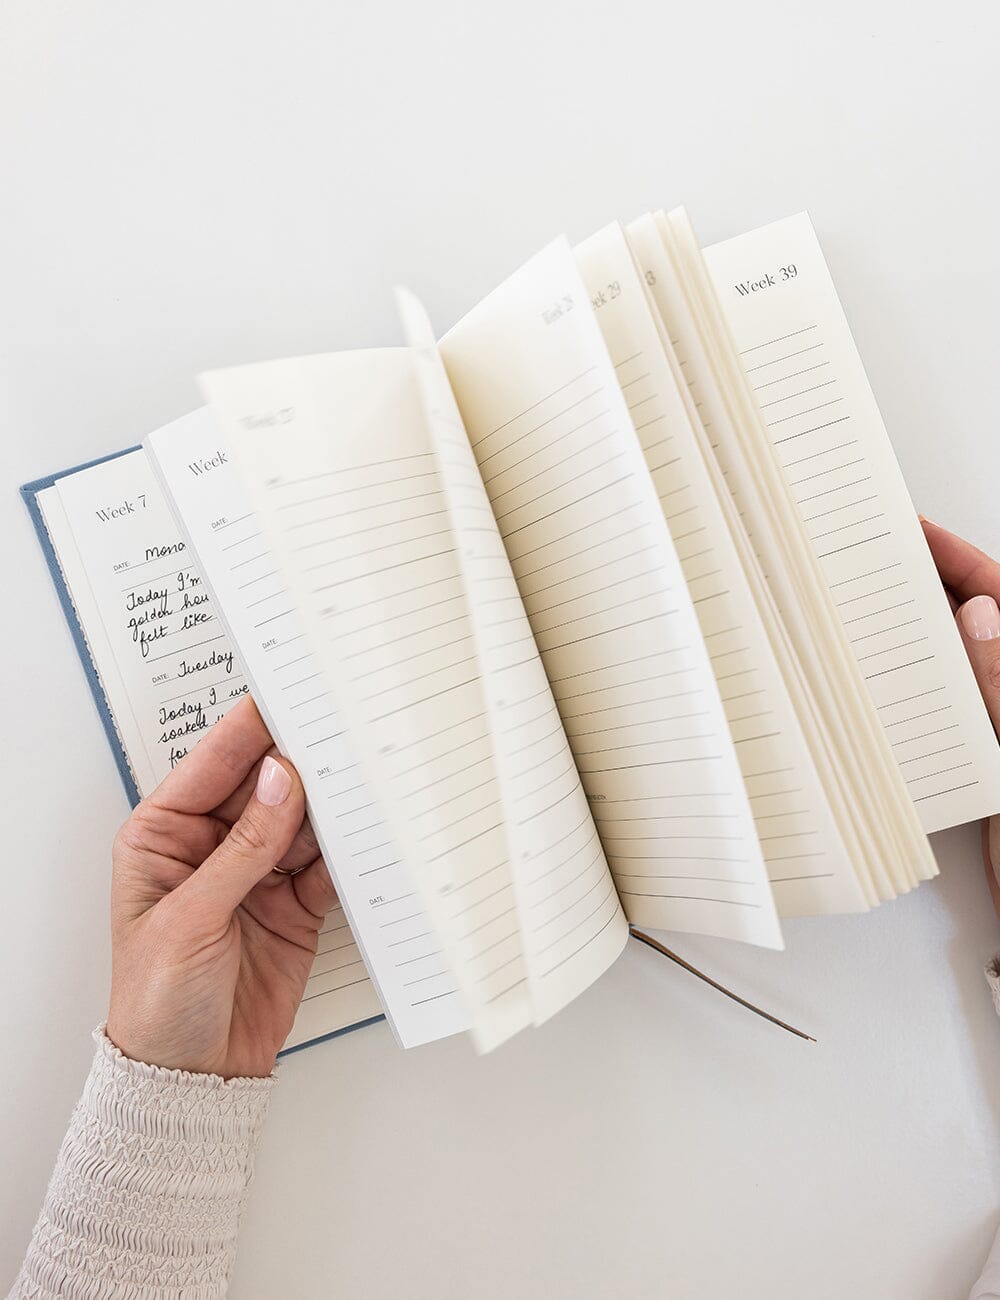 Week 7
DATE:
Today I'm
golden
felt like
DATE: Tuesday
Today I
soaked
Week
DATE:
DATE:
DATE:
DATE:
Week 27
Week 28
Week 29
Week 39